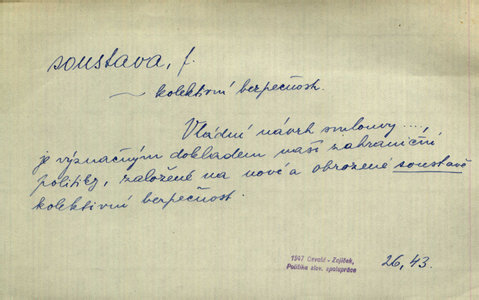 soustava, f.
~ kolektivní bezpečnost.
Vládní návrh smlouvy ...,
je význačným dokladem naší zahraniční
politiky, založené na nové a obrozené soustavě
kolektivní bezpečnost.
1947 Orvald - Zajíček,
Politika slov. spolupráce
26, 43.